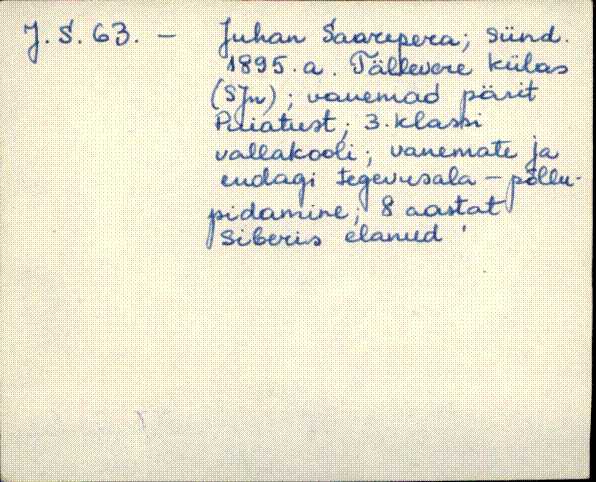 J. S. 63. – Juhan Saarepera; sünd.
1895. a. Tällevere külas
(SJn); vanemad pärit
Puiatust; 3. klassi
vallakooli; vanemate ja
endagi tegevusala – põllu-
pidamine; 8 aastat
Siberis elanud